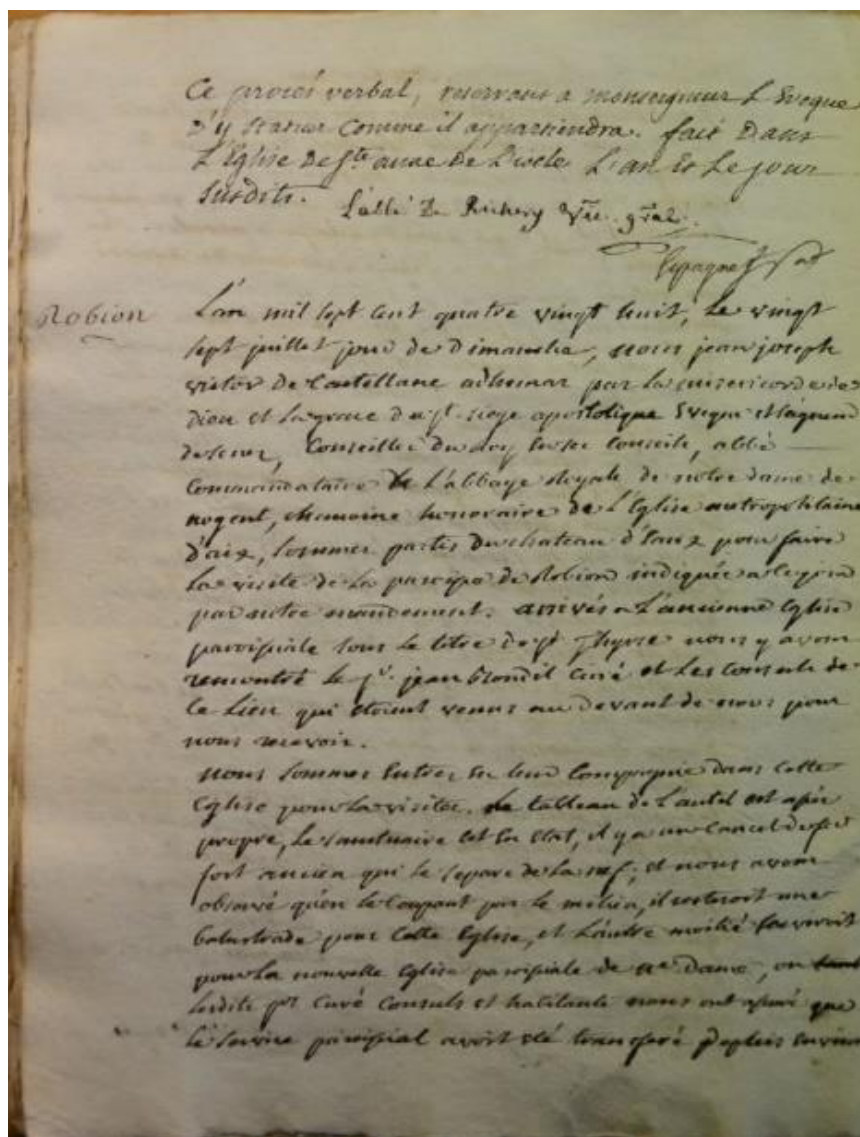 Ce procès verbal, reservant a monseigneur L'Eveque
d'y statuer comme il appartiendra. fait Dans
L'Eglise De Ste anne De L'isole L'an Et Le jour
susdits.
L'abbé De Richery vic. gral.
Espagnet
Robion
L'an mil sept cent quatre vingt huit, Le vingt
sept juillet jour de Dimanche, nous jean joseph
victor de Castellane adhemar par La misericorde de
dieu et La grace du st. siege apostolique Eveque et seigneur
de senez, Conseiller du Roy En ses Conseils, abbé
Commandataire de L'abbaye Royale de notre dame de
nogent, chanoine honoraire de L'Eglise metropolitaine
d'aix, sommes partis du chateau d'Eoux pour faire
La visite de La paroisse de Robion indiquée a ce jour
par notre mandement. arrivés a L'ancienne Eglise
paroissiale sous Le titre de st Thyrse nous y avons
rencontré Le sr. jean blondel Curé et Les Consuls de
Ce Lieu qui étoient venus au devant de nous pour
nous recevoir.
nous sommes Entrés En leur Compagnie dans Cette
Eglise pour La visiter. Le tableau de L'autel est assés
propre, Le sanctuaire est En état, il y a un Cancel de fer
fort ancien qui Le separe de La nef; et nous avons
observé qu'en le Coupant par le milieu, il resteroit une
balustrade pour Cette Eglise, et L'autre moitié serviroit
pour La nouvelle Eglise paroissiale de ne Dame,
Lesdits srs Curé Consuls et habitants nous ont assuré que
Le service paroissial avoit été transferé Depuis Environ